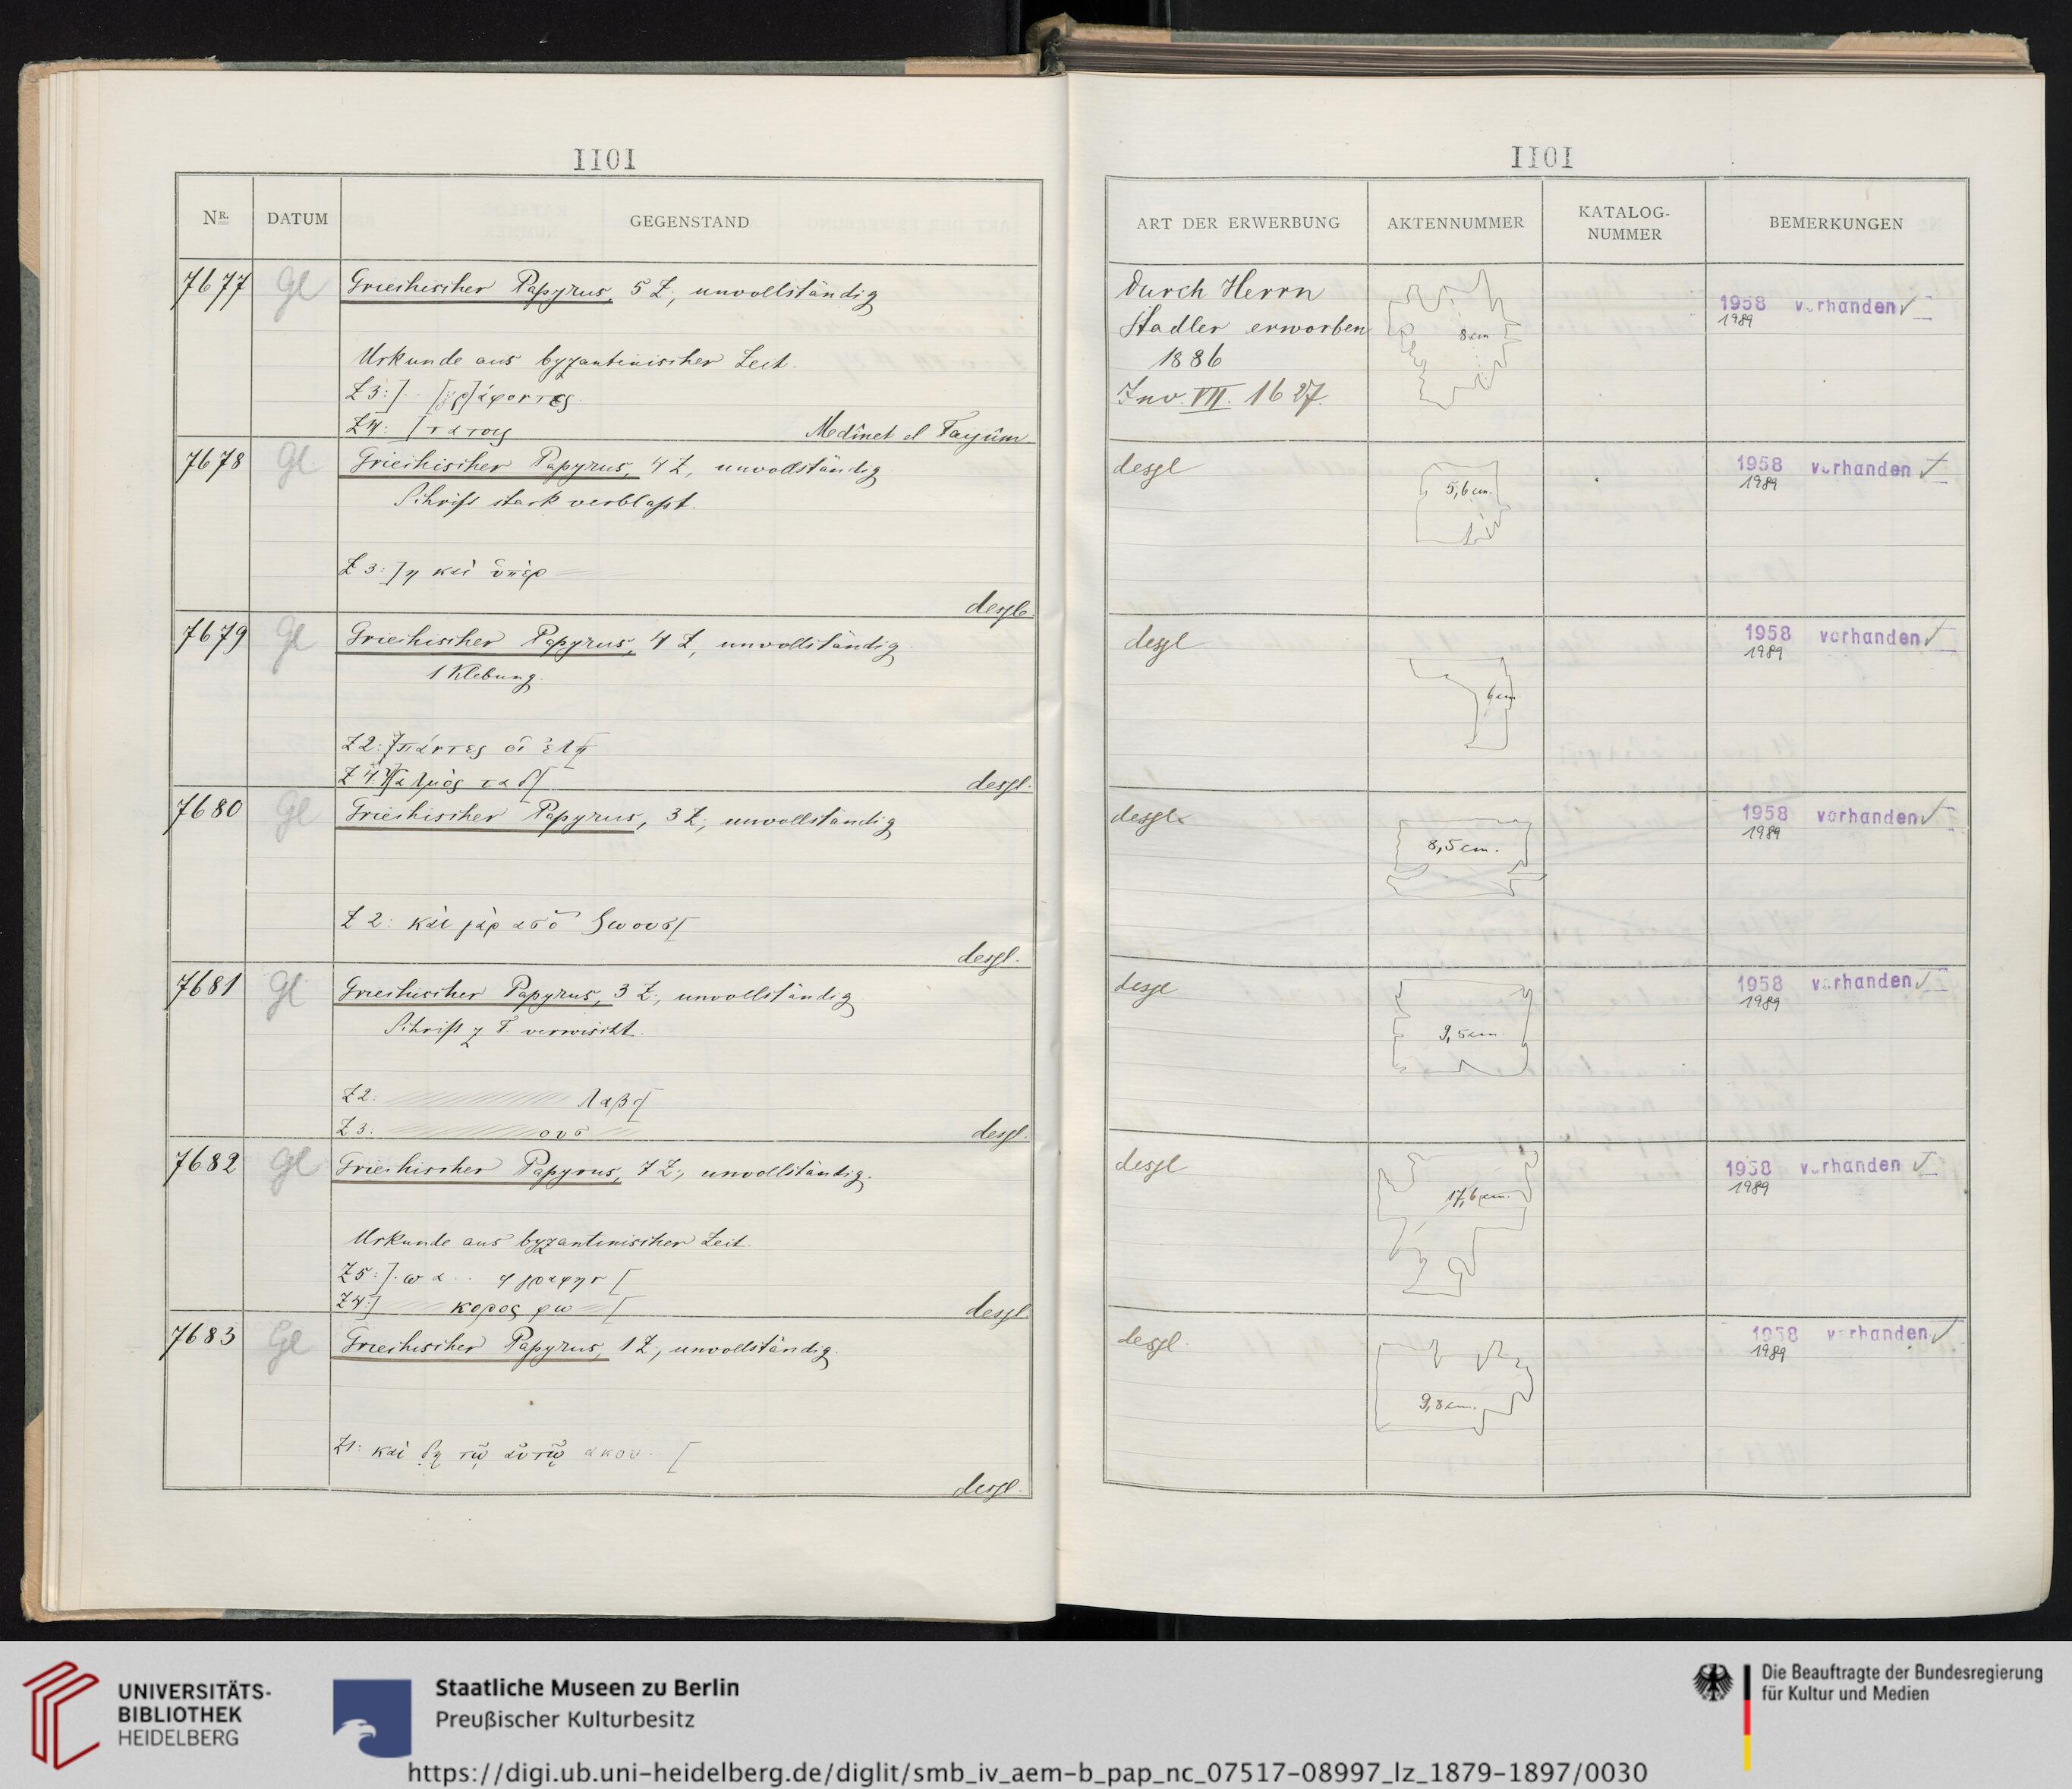 1101
Nr. DATUM GEGENSTAND
7677 Gl Griechischer Papyrus, 5 Z., unvollständig
Urkunde aus byzantinischer Zeit.
Z 3:
Z 4: [τατους
Medinet el Fayûm
7678 Gl Griechischer Papyrus, 4 Z., unvollständig
Schrift stark verblaßt.
Z 3: ]η καὶ ὑπὲρ
desgl.
7679 Gl Griechischer Papyrus, 4 Z., unvollständig
1 Klebung
Z 2: ]πάντες οἱ ἐλη[
Z 4:
desgl.
7680 Gl Griechischer Papyrus, 3 Z., unvollständig
Z 2: καὶ γὰρ
desgl.
7681 Gl Griechischer Papyrus, 3 Z., unvollständig
Schrift z. T. verwischt.
Z 2: λαβ
Z 3: ουσ
desgl.
7682 Gl Griechischer Papyrus, 7 Z., unvollständig.
Urkunde aus byzantinischer Zeit.
Z 5: ]. ω α . . γραφην [
Z 4: ] κορος φω [
desgl.
7683 Gl Griechischer Papyrus, 1 Z., unvollständig.
Z 1: καὶ δη τῷ αὐτῷ ακου [
desgl.
1101
ART DER ERWERBUNG AKTENNUMMER KATALOG-
NUMMER BEMERKUNGEN
Durch Herrn
Stadler erworben
1886
Inv. VII. 1627.
8 cm
1958 vorhanden
1989
desgl
5,6 cm.
1958 vorhanden
1989
desgl
6 cm
1958 vorhanden
1989
desgl.
8,5 cm.
1958 vorhanden
1989
desgl
9,5 cm
1958 vorhanden
1989
desgl
17,6 cm.
1958 vorhanden
1989
desgl.
9,8 cm.
1958 vorhanden
1989
UNIVERSITÄTS-
BIBLIOTHEK
HEIDELBERG
Staatliche Museen zu Berlin
Preußischer Kulturbesitz
Die Beauftragte der Bundesregierung
für Kultur und Medien
https://digi.ub.uni-heidelberg.de/diglit/smb_iv_aem-b_pap_nc_07517-08997_lz_1879-1897/0030